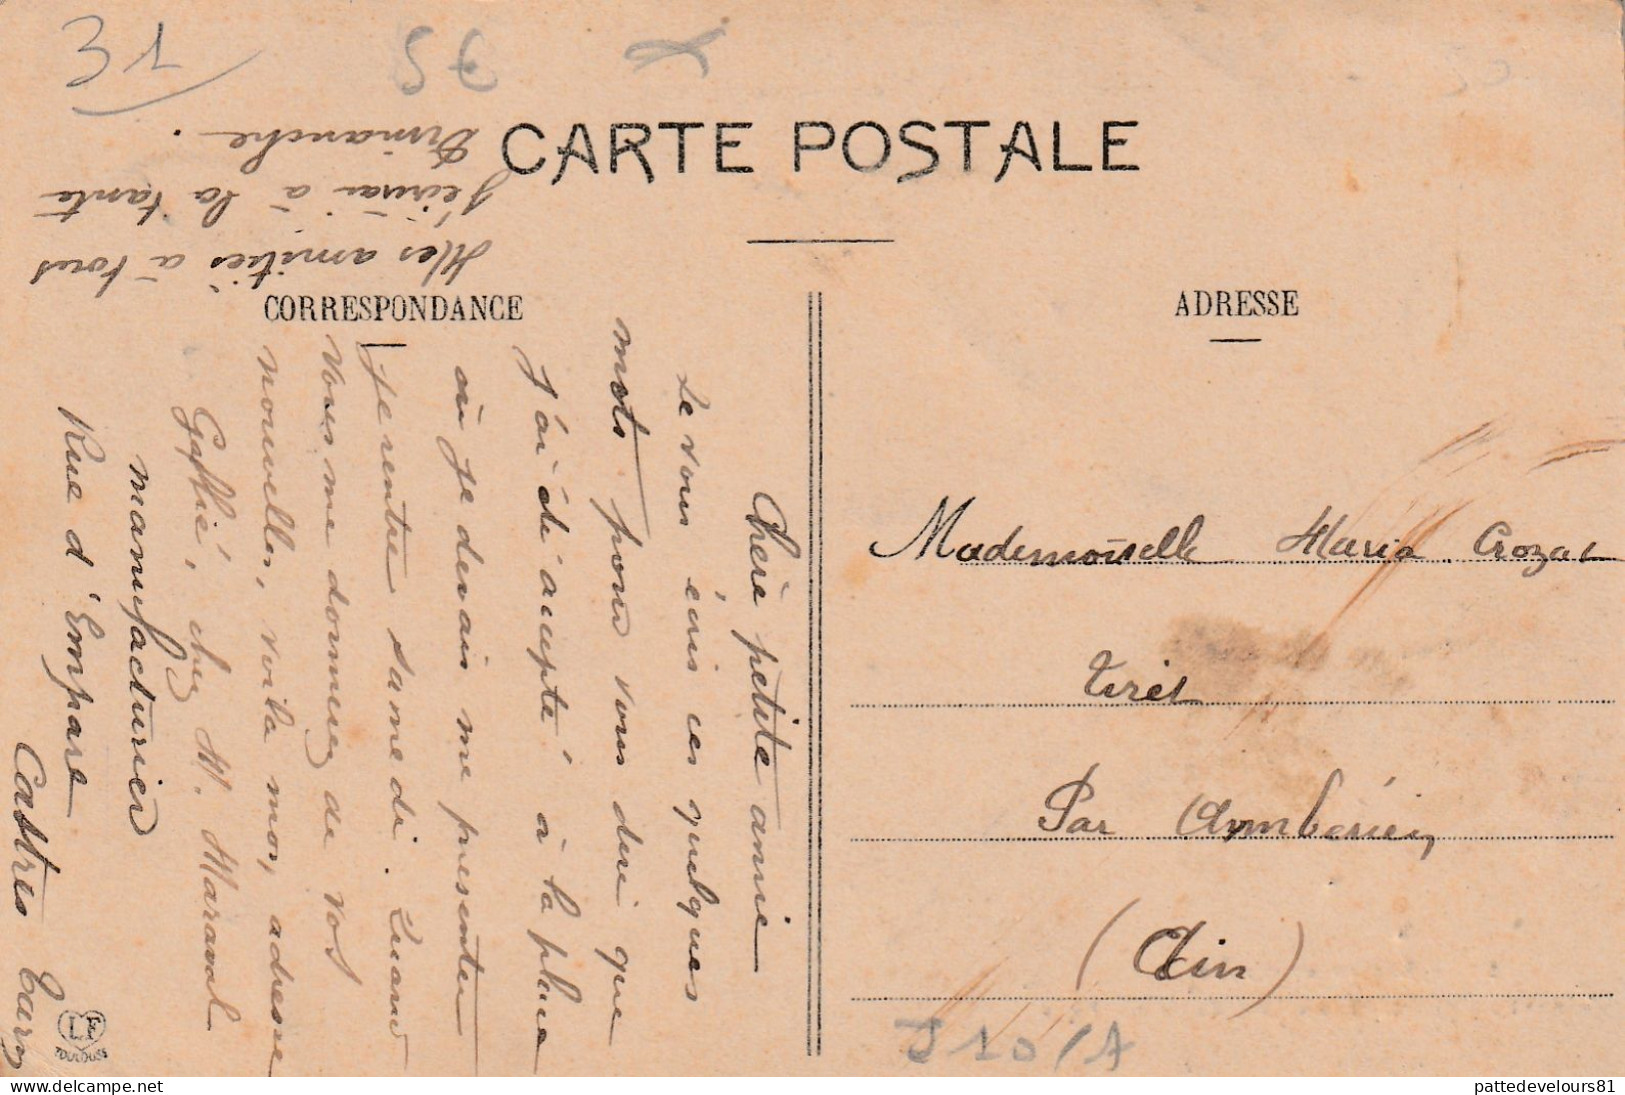 31
5€
CARTE POSTALE
CORRESPONDANCE
ADRESSE
Chère petite amie
Je vous écris ces quelques
mots pour vous dire que
J'ai été accepté à la place
où je devais me présenter
Je rentre samedi. Quand
vous me donnerez de vos
nouvelles, voila mon adresse
chez M. Maraval
manufacturier
Rue d'Empare
Castres Tarn
Mes amitiés à tous
J'écrirai à la tante
Dimanche.
Mademoiselle Maria Crozat
Tiret
Par Ambérieu
(Ain)
J10/A
LF
TOULOUSE
pattedevelours81